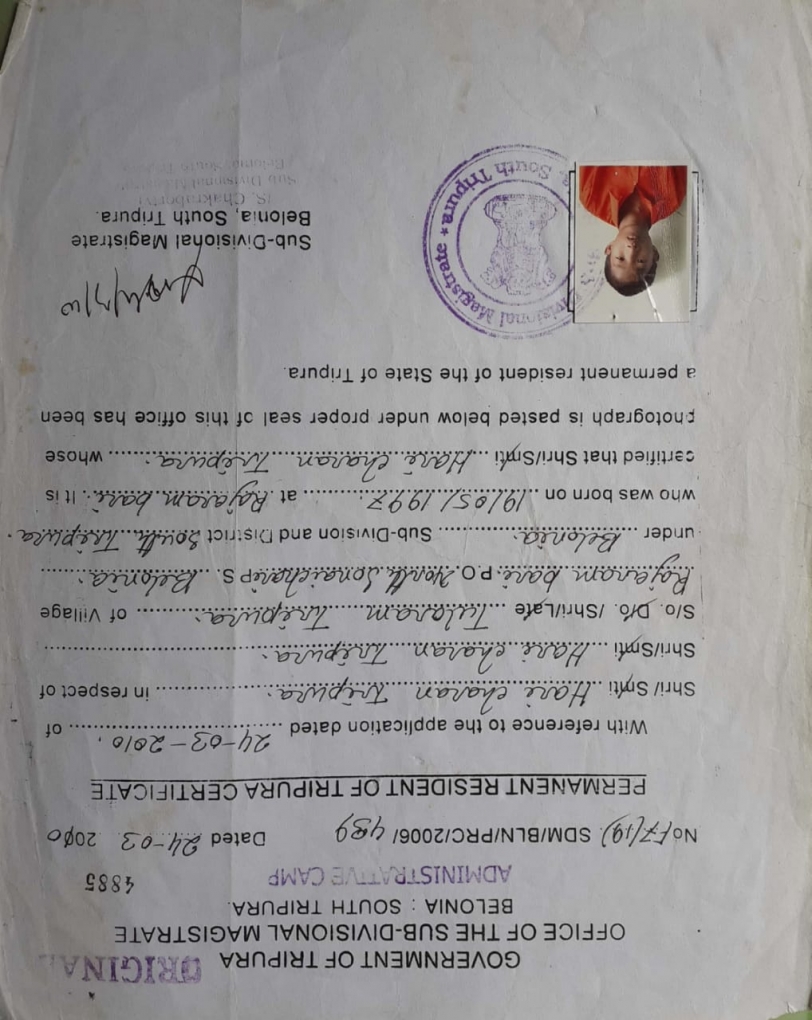 ORIGINAL
GOVERNMENT OF TRIPURA
OFFICE OF THE SUB-DIVISIONAL MAGISTRATE
BELONIA : SOUTH TRIPURA.
ADMINISTRATIVE CAMP
4885
No F7(19) SDM/BLN/PRC/2006/ 489 Dated 24-03 2010
PERMANENT RESIDENT OF TRIPURA CERTIFICATE
With reference to the application dated 24-03-2010, of
Shri/ Smti. Hari charan Tripura. in respect of
Shri/Smti Hari charan Tripura.
S/o. D/o. /Shri/Late Tularam Tripura. of Village
Rajeram bari. P.O. North Sonaichari P S. Belonia.
under Belonia. Sub-Division and District South Tripura.
who was born on 19/05/1997. at Rajaram bari. It is
certified that Shri/Smti Hari charan Tripura. whose
photograph is pasted below under proper seal of this office has been
a permanent resident of the State of Tripura.
Sub-Divisional Magistrate
Belonia, South Tripura.
(S. Chakraborty)
Sub Divisional Magistrate
Belonia, South Tripura
Divisional Magistrate ★ South Tripura